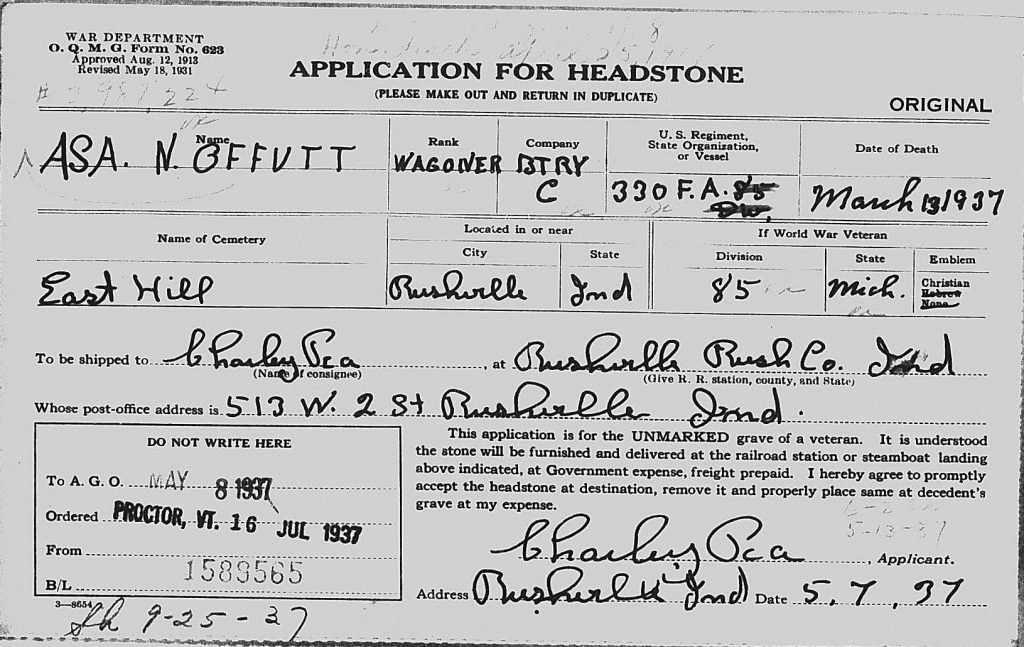 WAR DEPARTMENT
O. Q. M. G. Form No. 623
Approved Aug. 12, 1913
Revised May 18, 1931
APPLICATION FOR HEADSTONE
(PLEASE MAKE OUT AND RETURN IN DUPLICATE)
ORIGINAL
Name
ASA. N. OFFUTT
Rank
WAGONER
Company
BTRY
C
U. S. Regiment,
State Organization,
or Vessel
330 F.A. 85
Div.
Date of Death
March 13 1937
Name of Cemetery
East Hill
Located in or near
City
Rushville
State
Ind
If World War Veteran
Division
85
State
Mich.
Emblem
Christian
Hebrew
None
To be shipped to Charley Pea, at Rushville Rush Co. Ind
(Name of consignee) (Give R. R. station, county, and State)
Whose post-office address is 513 W. 2 St Rushville Ind.
DO NOT WRITE HERE
To A. G. O. MAY 8 1937
Ordered PROCTOR, VT. 16 JUL 1937
From
1589565
B/L
3—8654
This application is for the UNMARKED grave of a veteran. It is understood
the stone will be furnished and delivered at the railroad station or steamboat landing
above indicated, at Government expense, freight prepaid. I hereby agree to promptly
accept the headstone at destination, remove it and properly place same at decedent's
grave at my expense.
5-13-37
Charley Pea, Applicant.
Address Rushville Ind Date 5, 7, 37
9-25-37